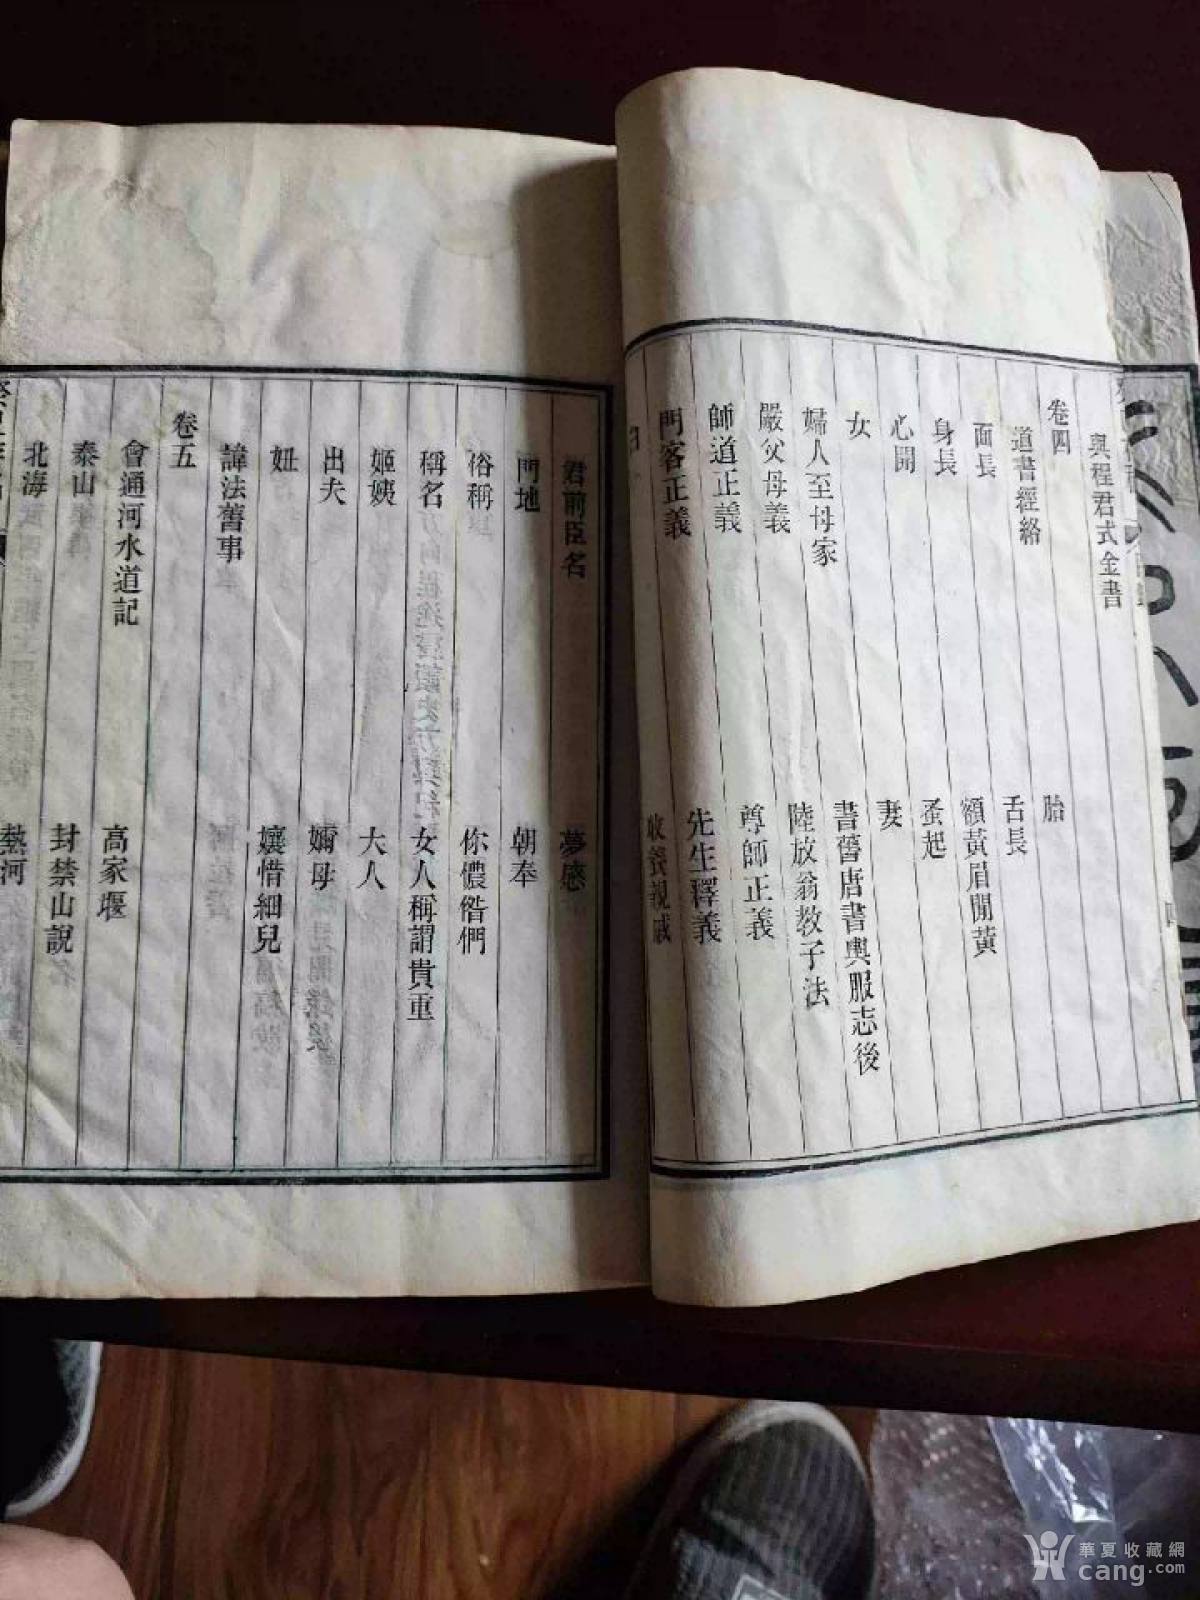 與程君式金書
卷四
道書經絡
胎
面長
舌長
身長
額黃眉閒黃
心開
蚤起
女
妻
婦人至母家
書舊唐書輿服志後
嚴父母義
陸放翁教子法
師道正義
尊師正義
門客正義
先生釋義
收養親戚
君前臣名
夢感
門地
朝奉
俗稱
你儂偺們
稱名
女人稱謂貴重
姬姨
大人
出夫
嬭母
妞
孃惜細兒
諱法舊事
卷五
會通河水道記
高家堰
泰山
封禁山說
北海
熱河
華夏收藏網
cang.com